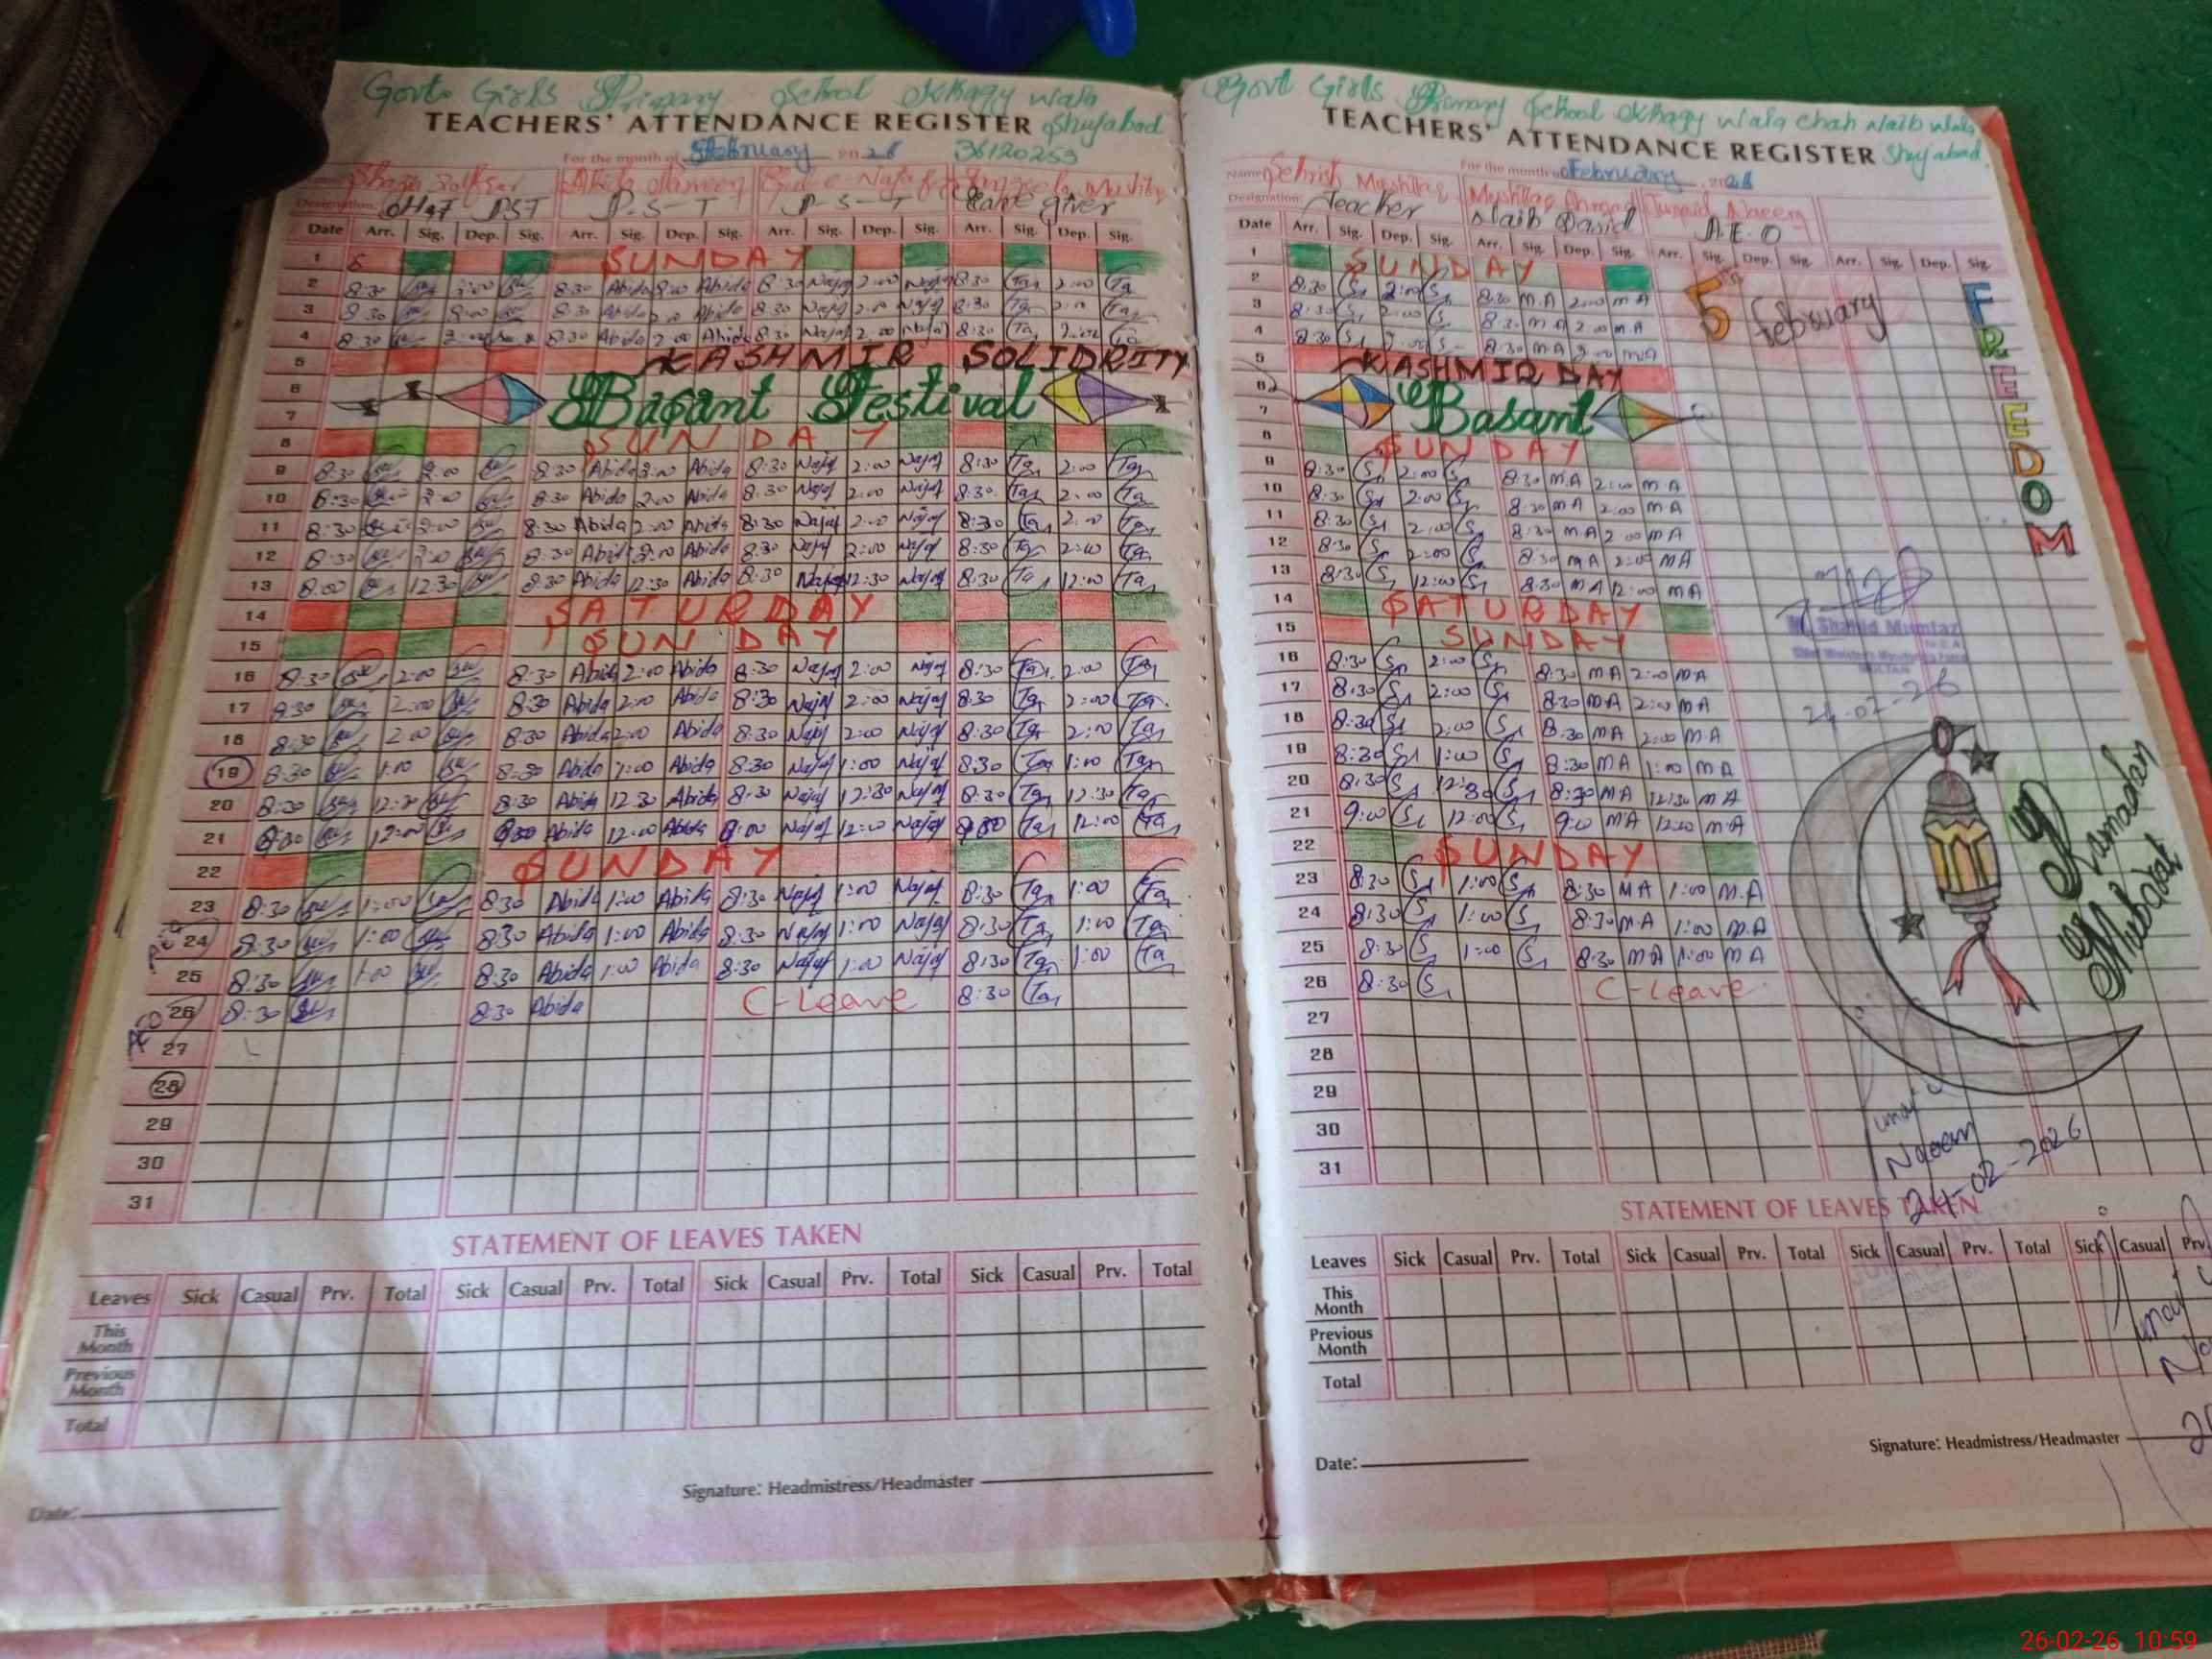 Govt. Girls Primary School Khagy wala
TEACHERS' ATTENDANCE REGISTER Shujabad
For the month of February 2026 36120253
Designation: PST P.S-T P-S-T Care giver
Date Arr. Sig. Dep. Sig. Arr. Sig. Dep. Sig. Arr. Sig. Dep. Sig. Arr. Sig. Dep. Sig.
1 SUNDAY
2 8:30 8:30 Abida 2:00 Abida 8:30 Najaf 2:00 Najaf 8:30 Ta 2:00 Ta
3 8:30 8:30 Abida Abida 8:30 Najaf 2:00 Najaf 8:30 Ta Ta
4 8:30 2:00 8:30 Abida 2:00 Abida 8:30 Najaf 2:00 Najaf 8:30 Ta 2:00 Ta
5 KASHMIR SOLIDRITY
6
7 Basant Festival
8 SUNDAY
9 8:30 2:00 8:30 Abida 2:00 Abida 8:30 Najaf 2:00 Najaf 8:30 Ta 2:00 Ta
10 8:30 2:00 8:30 Abida 2:00 Abida 8:30 Najaf 2:00 Najaf 8:30 Ta 2:00 Ta
11 8:30 2:00 8:30 Abida 2:00 Abida 8:30 Najaf 2:00 Najaf 8:30 Ta 2:00 Ta
12 8:30 2:00 8:30 Abida 2:00 Abida 8:30 Najaf 2:00 Najaf 8:30 Ta 2:00 Ta
13 8:00 12:30 8:30 Abida 12:30 Abida 8:30 Najaf 12:30 Najaf 8:30 Ta 12:00 Ta
14 SATURDAY
15 SUNDAY
16 8:30 2:00 8:30 Abida 2:00 Abida 8:30 Najaf 2:00 Najaf 8:30 Ta 2:00 Ta
17 8:30 2:00 8:30 Abida 2:00 Abida 8:30 Najaf 2:00 Najaf 8:30 Ta 2:00 Ta
18 8:30 2:00 8:30 Abida 2:00 Abida 8:30 Najaf 2:00 Najaf 8:30 Ta 2:00 Ta
19 8:30 1:00 8:30 Abida 1:00 Abida 8:30 Najaf 1:00 Najaf 8:30 Ta 1:00 Ta
20 8:30 12:30 8:30 Abida 12:30 Abida 8:30 Najaf 12:30 Najaf 8:30 Ta 12:30 Ta
21 12:00 Abida 12:00 Abida 9:00 Najaf 12:00 Najaf Ta 12:00 Ta
22 SUNDAY
23 8:30 1:00 8:30 Abida 1:00 Abida 8:30 Najaf 1:00 Najaf 8:30 Ta 1:00 Ta
24 8:30 1:00 8:30 Abida 1:00 Abida 8:30 Najaf 1:00 Najaf 8:30 Ta 1:00 Ta
25 8:30 1:00 8:30 Abida 1:00 Abida 8:30 Najaf 1:00 Najaf 8:30 Ta 1:00 Ta
26 8:30 8:30 Abida C-Leave 8:30 Ta
27
28
29
30
31
STATEMENT OF LEAVES TAKEN
Leaves Sick Casual Prv. Total Sick Casual Prv. Total Sick Casual Prv. Total Sick Casual Prv. Total
This Month
Previous Month
Total
Signature: Headmistress/Headmaster
Date:
Govt Girls Primary School Khagy Wala Chah Naib Wala
TEACHERS' ATTENDANCE REGISTER Shujabad
For the month of February 2026
Name: Sehrish Mushtaq Mushtaq Ahmad Junaid Naeem
Designation: Teacher Naib Qasid A.E.O
Date Arr. Sig. Dep. Sig. Arr. Sig. Dep. Sig. Arr. Sig. Dep. Sig. Arr. Sig. Dep. Sig.
1 SUNDAY
2 8:30 S 2:00 S 8:30 M.A 2:00 M A
3 8:30 S 2:00 S 8:30 M A 2:00 M.A
4 8:30 S 2:00 S 8:30 M.A 2:00 M.A
5 February
5 KASHMIR DAY
6
7 Basant
8 SUNDAY
9 8:30 S 2:00 S 8:30 M.A 2:00 M A
10 8:30 S 2:00 S 8:30 M A 2:00 M A
11 8:30 S 2:00 S 8:30 M A 2:00 M A
12 8:30 S 2:00 S 8:30 M A 2:00 M A
13 8:30 S 12:00 S 8:30 M A 12:00 M A
14 SATURDAY
15 SUNDAY
16 8:30 S 2:00 S 8:30 M A 2:00 M A
17 8:30 S 2:00 S 8:30 M A 2:00 M A
18 8:30 S 2:00 S 8:30 M A 2:00 M A
19 8:30 S 1:00 S 8:30 M A 1:00 M A
20 8:30 S 12:30 S 8:30 M A 12:30 M A
21 9:00 S 12:00 S 9:00 M A 12:00 M.A
22 SUNDAY
23 8:30 S 1:00 S 8:30 M A 1:00 M.A
24 8:30 S 1:00 S 8:30 M.A 1:00 M.A
25 8:30 S 1:00 S 8:30 M A 1:00 M A
26 8:30 S C-Leave
27
28
29
30
31
FREEDOM
Shahid Mumtaz
MULTAN
24-02-26
Ramadan
Mubarak
Naeem
24-02-2026
STATEMENT OF LEAVES TAKEN
Leaves Sick Casual Prv. Total Sick Casual Prv. Total Sick Casual Prv. Total Sick Casual Prv.
This Month
Previous Month
Total
Signature: Headmistress/Headmaster
Date:
26-02-26 10:59